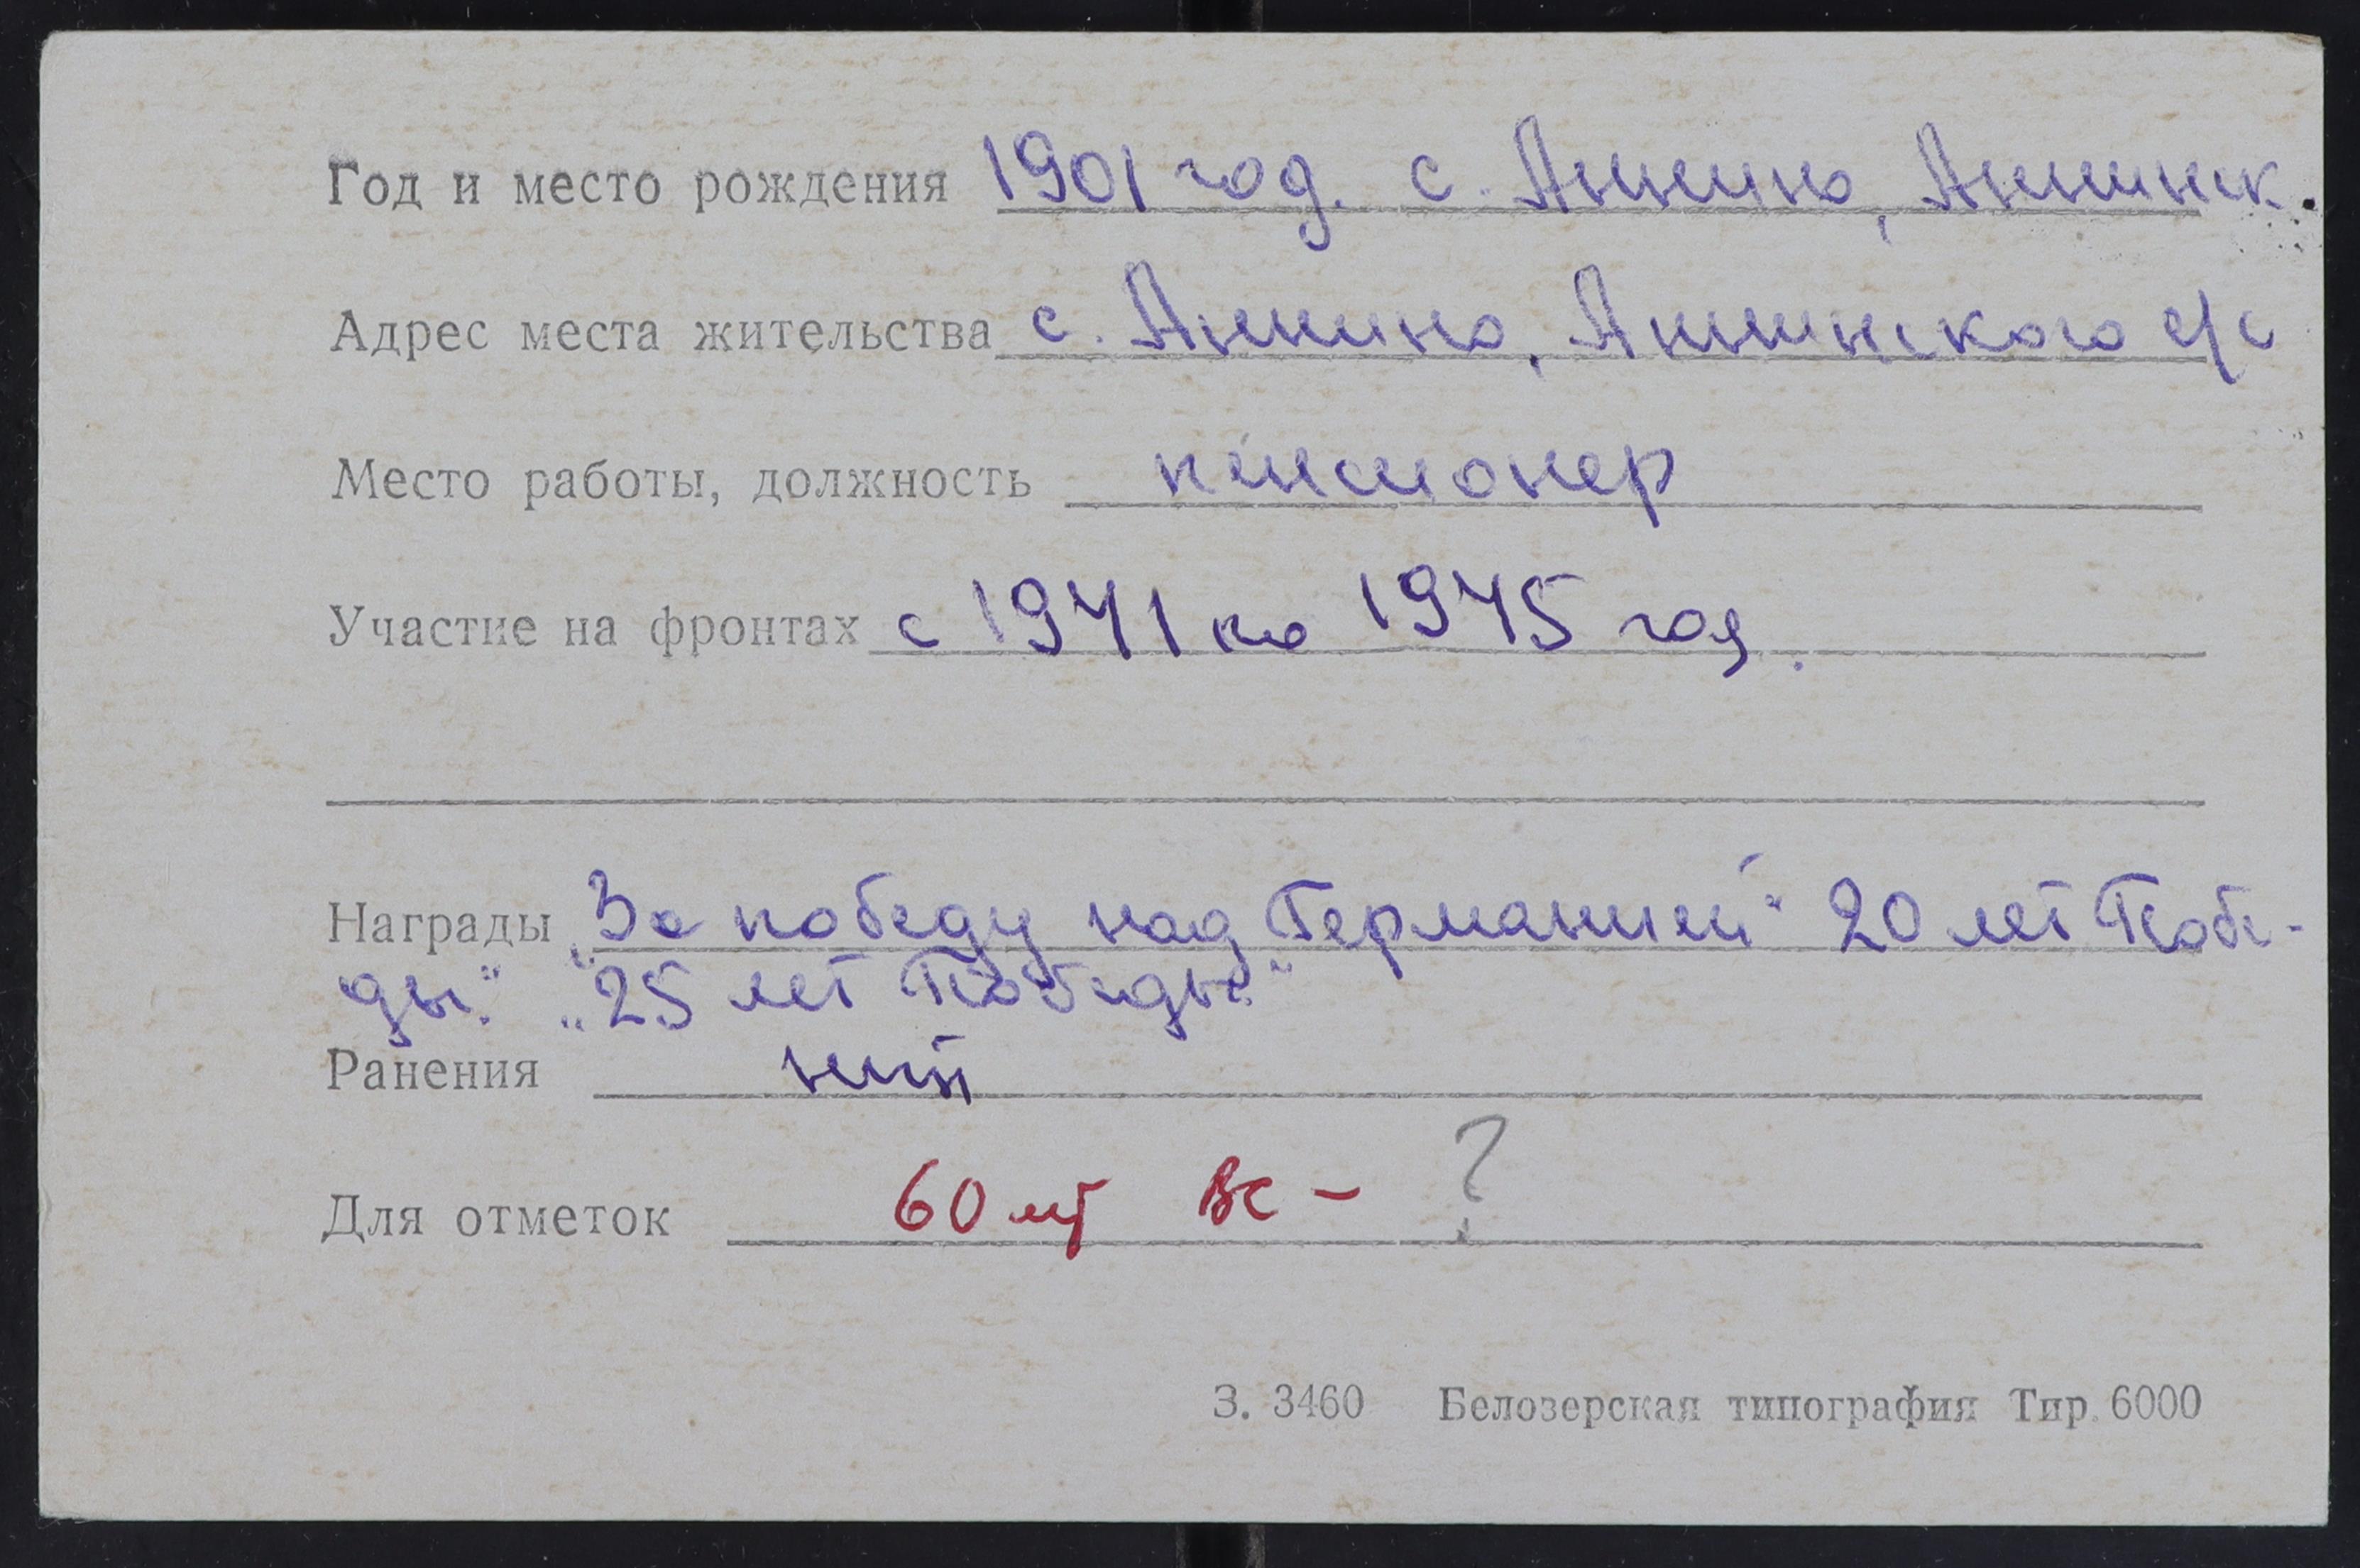 Год и место рождения 1901 год. с. Аннино, Аннинск.
Адрес места жительства с. Аннино, Аннинского с/с
Место работы, должность пенсионер
Участие на фронтах с 1941 по 1945 год.
Награды „За победу над Германией" 20 лет Побе-
ды." „25 лет Победы"
Ранения нет
Для отметок 60 лет ВС - ?
З. 3460 Белозерская типография Тир. 6000